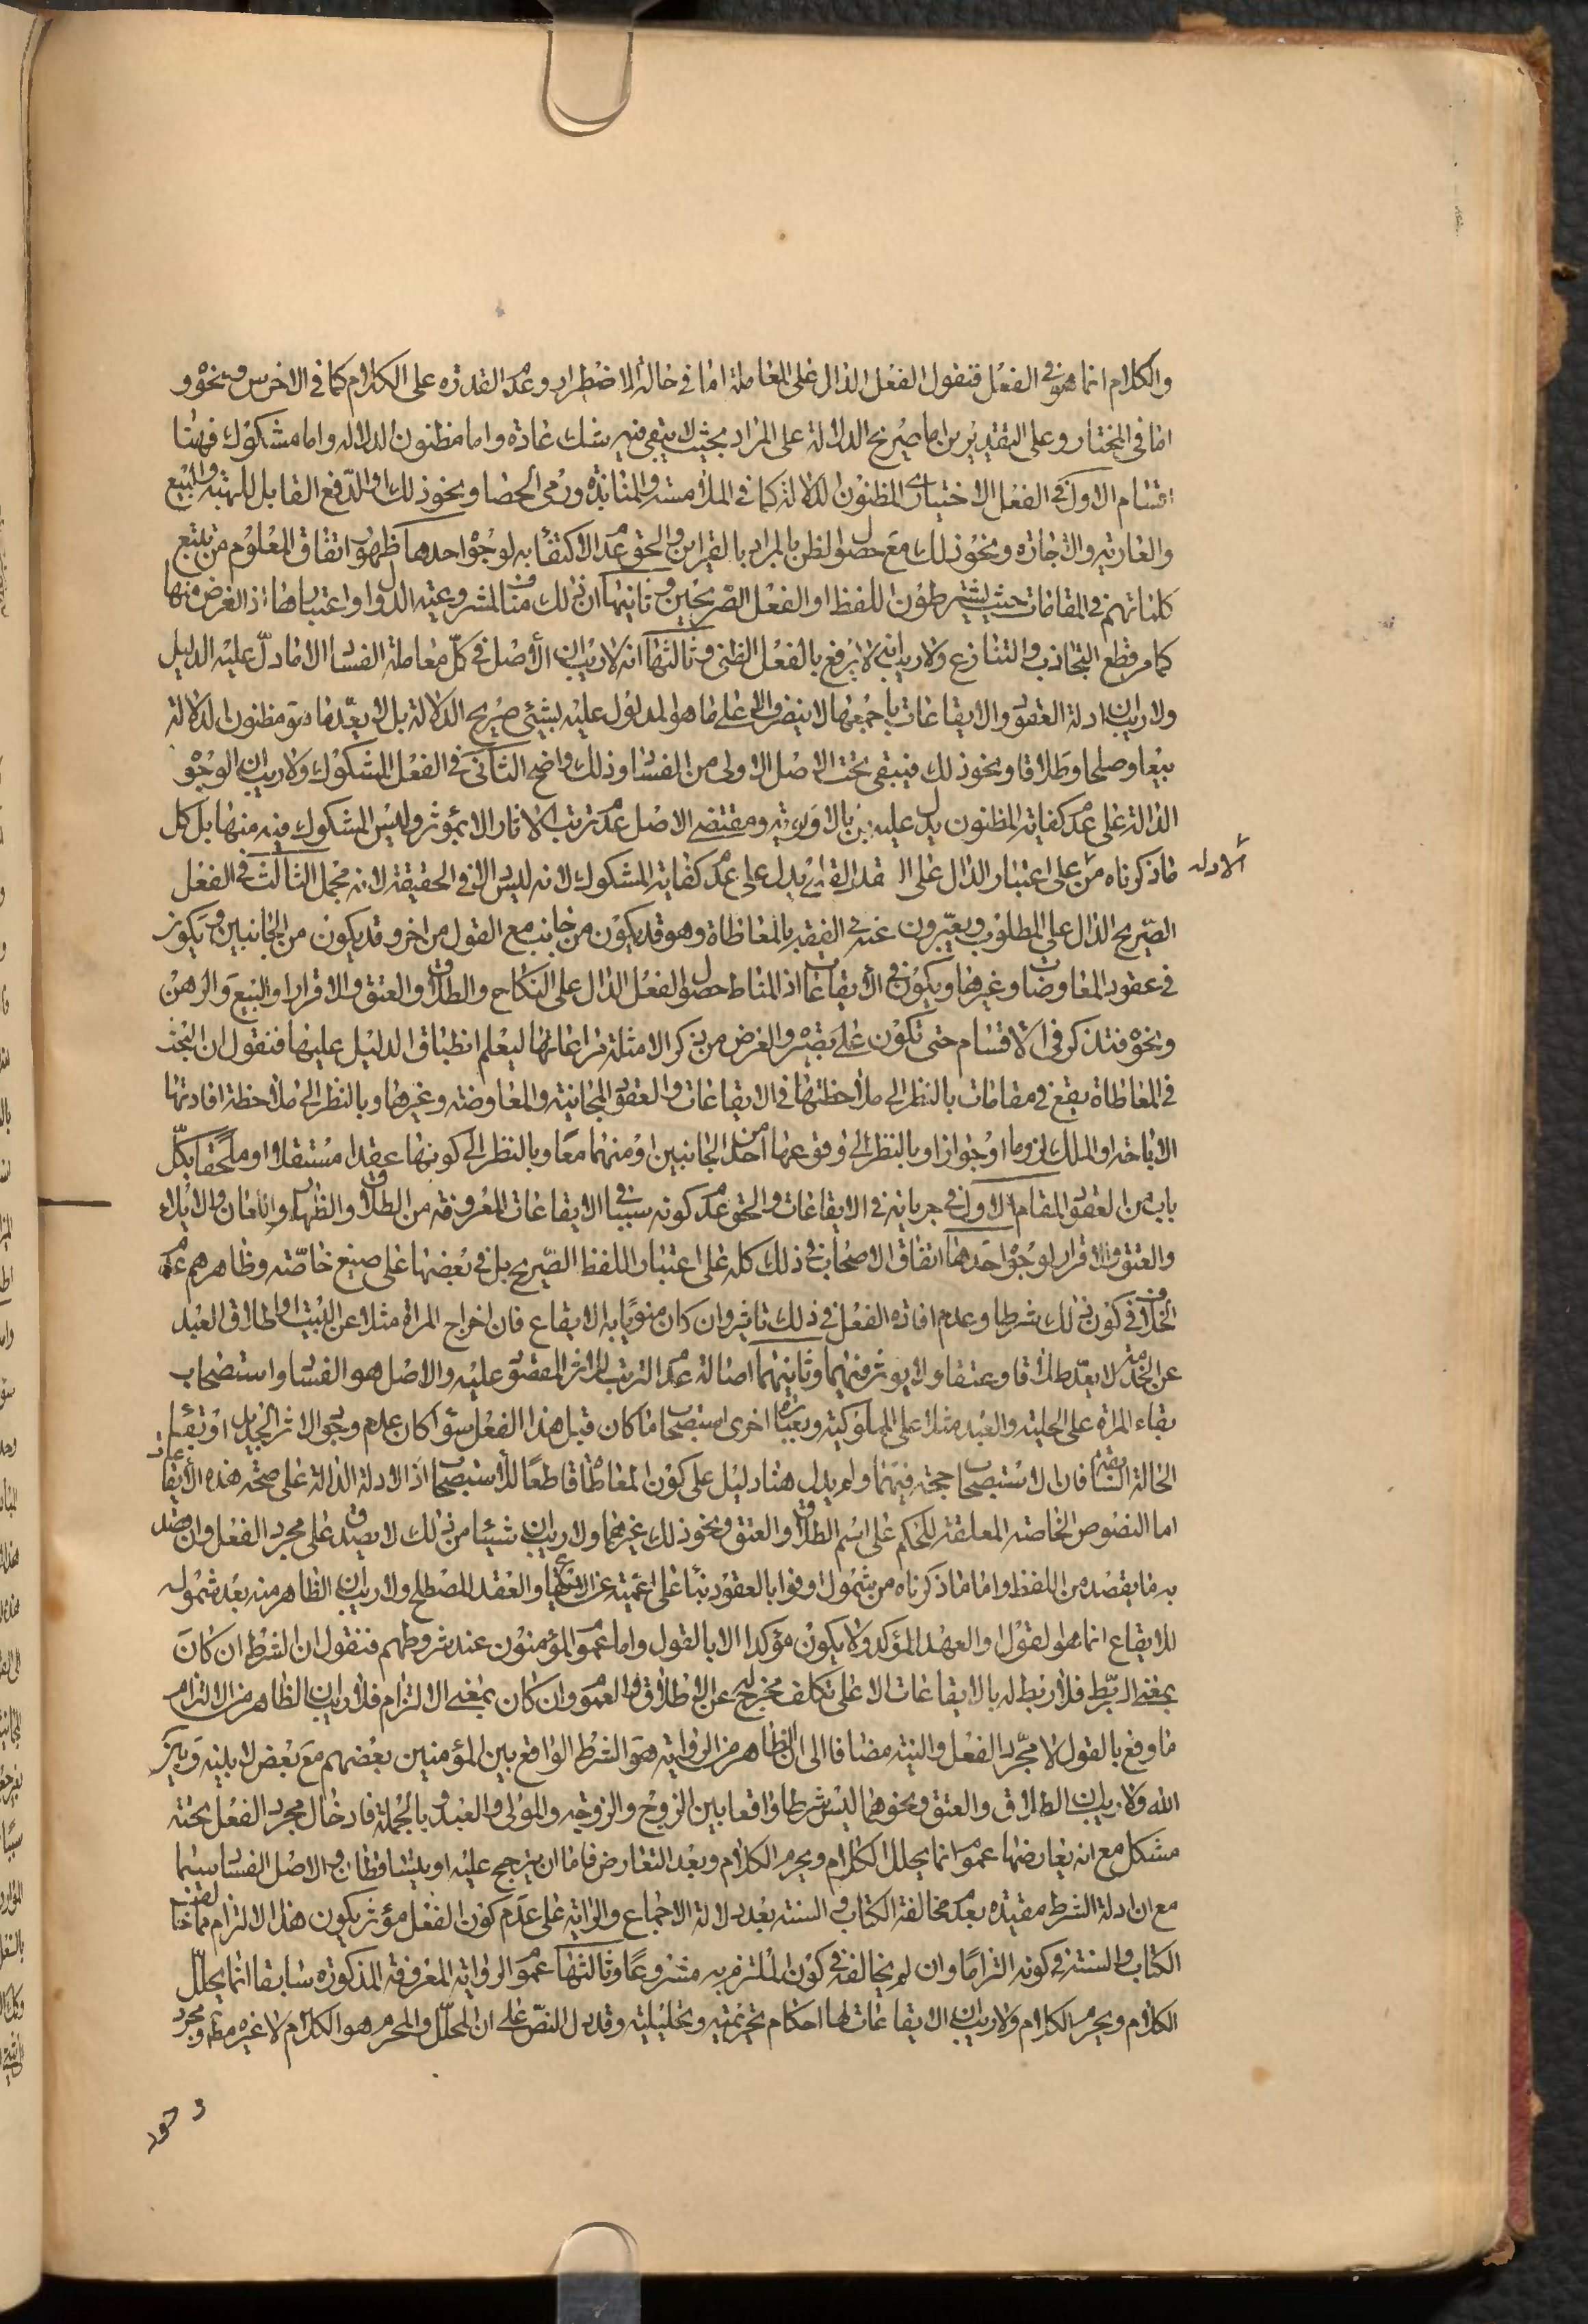 والكلام انما هو في الفعل فنقول الفعل الدال على المعاملة اما في حالة الاضطرار وعدم القدرة على الكلام كما في الاخرس ونحوه و
اما في المختار وعلى التقديرين اما صريح الدلالة على المراد بحيث لا يبقى فيه شك عادة واما مظنون الدلالة واما مشكوك فهنا
اقسام الاول في الفعل الاختياري المظنون الدلالة كما في الملامسة والمنابذة ورمى الحصا ونحو ذلك والدفع القابل للهبة والبيع
والعارية والاجارة ونحو ذلك مع حصول الظن بالمراد بالقراين والحق عدم الاكتفاء به لوجوه احدها ظهور اتفاق المعلوم من تتبع
كلماتهم في المقامات حيث يشترطون اللفظ او الفعل الصريحين وثانيها ان ذلك مناف لمشروعية الدوال واعتبارها اذ الغرض منها
كما مر قطع التجاذب والتنازع ولا ريب انه لا يرفع بالفعل الظني وثالثها انه لا ريب ان الأصل في كل معاملة الفساد الا ما دل عليه الدليل
ولا ريب ان ادلة العقود والايقاعات باجمعها لا ينصرف الا على ما هو المدلول عليه بشيء صريح الدلالة بل لا يعد ما هو مظنون الدلالة
بيعا وصلحا وطلاقا ونحو ذلك فيبقى تحت الاصل الاولى من الفساد وذلك واضح الثانى في الفعل المشكوك ولا ريب ان الوجوه
الدالة على عدم كفاية المظنون يدل عليه بالاولوية ومقتضى الاصل عدم ترتب الاثار الا بمؤثر وليس المشكوك فيه منها بل كل
ما ذكرناه من الادلة على اعتبار الدال على القدر القابل يدل على عدم كفاية المشكوك لانه ليس دالا في الحقيقة لانه مجمل الثالث في الفعل
الصريح الدال على المطلوب ويعبرون عنه في الفقه بالمعاطاة وهو قد يكون من جانب مع القول من اخر وقد يكون من الجانبين ويكون
في عقود المعاوضات وغيرها ويكون في الأيقاعات اذ المناط حصول الفعل الدال على النكاح والطلاق والعتق والاقرار او البيع والرهن
ونحوه فتذكر في الاقسام حتى تكون على بصيرة والغرض من ذكر الامثلة مراعاتها ليعلم انطباق الدليل عليها فنقول ان البحث
في المعاطاة يقع في مقامات بالنظر الى ملاحظتها في الايقاعات والعقود المجانية والمعاوضة وغيرهما وبالنظر الى ملاحظة افادتها
الاباحة او الملك لزوما او جوازا وبالنظر الى وقوعها من احد الجانبين او منهما معا وبالنظر الى كونها عقدا مستقلا او ملحقا بكل
باب من العقود المقام الاول في جريانه في الايقاعات والحق عدم كونه سببا في الايقاعات المعروفة من الطلاق والظهار واللعان والايلاء
والعتق والاقرار لوجوه احدها اتفاق الاصحاب في ذلك كله على اعتبار اللفظ الصريح بل في بعضها على صيغ خاصة وظاهرهم عدم
الخلاف في كون ذلك شرطا وعدم افادة الفعل في ذلك تاثيرا وان كان منويا به الايقاع فان اخراج المراة مثلا عن البيت او اطلاق العبد
عن الخدمة لا يعد طلاقا وعتقا ولا يوثر فيهما وثانيهما اصالة عدم الترتب للاثر المقصود عليه والاصل هو الفساد واستصحاب
بقاء المراة على الحلية والعبد مثلا على المملوكية وبعبارة اخرى استصحاب ما كان قبل هذا الفعل سواء كان عدم وجود الاثر الجديد او بقاء
الحالة السابقة فان الاستصحاب حجة فيهما ولم يدل هنا دليل على كون المعاطاة قاطعا للاستصحاب اذ الادلة الدالة على صحة هذه الايقاعات
اما النصوص الخاصة المعلقة للحكم على اسم الطلاق والعتق ونحو ذلك غيرهما ولا ريب ان شيئا من ذلك لا يصدق على مجرد الفعل وان قصد
به ما يقصد من اللفظ واما ما ذكرناه من شمول اوفوا بالعقود بناء على اعميته عن الايقاع والعقد المصطلح ولا ريب ان الظاهر منه بعد شموله
للايقاع انما هو القول والعهد المؤكد ولا يكون مؤكدا الا بالقول واما عموم المؤمنون عند شروطهم فنقول ان الشرط ان كان
بمعنى الربط فلا ربط له بالايقاعات الا على تكلف مخرج له عن الاطلاق والعموم وان كان بمعنى الالتزام فلا ريب ان الظاهر من الالتزام
ما وقع بالقول لا مجرد الفعل والنية مضافا الى ان الظاهر من الرواية هو الشرط الواقع بين المؤمنين بعضهم مع بعض لا بينه وبين
الله ولا ريب ان الطلاق والعتق ونحوهما ليس شرطا واقعا بين الزوج والزوجة والمولى والعبد وبالجملة فادخال مجرد الفعل تحته
مشكل مع انه يعارضها عموم انما يحلل الكلام ويحرم الكلام وبعد التعارض فاما ان يترجح عليه او يتساقطان والاصل الفساد سيما
مع ان ادلة الشرط مقيدة بعدم مخالفة الكتاب والسنة بعد دلالة الاجماع والراية على عدم كون الفعل مؤثرا يكون هذا الالتزام مما خالف
الكتاب والسنة في كونه التزاما وان لم يخالفه في كون الملتزم به مشروعا وثالثها عموم الرواية المعروفة المذكورة سابقا انما يحلل
الكلام ويحرم الكلام ولا ريب ان الايقاعات لها احكام تحريمية وتحليلية وقد دل النص على ان المحلل والمحرم هو الكلام لا غيره مطلقا ومجرد